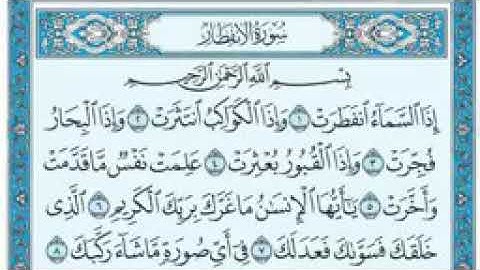 سُورَةُ الْاِنفِطَارِ
بِسْمِ اللَّهِ الرَّحْمَٰنِ الرَّحِيمِ
إِذَا السَّمَآءُ انفَطَرَتْ ١ وَإِذَا الْكَوَاكِبُ انتَثَرَتْ ٢ وَإِذَا الْبِحَارُ
فُجِّرَتْ ٣ وَإِذَا الْقُبُورُ بُعْثِرَتْ ٤ عَلِمَتْ نَفْسٌ مَّا قَدَّمَتْ
وَأَخَّرَتْ ٥ يَٰٓأَيُّهَا الْإِنسَٰنُ مَا غَرَّكَ بِرَبِّكَ الْكَرِيمِ ٦ الَّذِى
خَلَقَكَ فَسَوَّىٰكَ فَعَدَلَكَ ٧ فِىٓ أَىِّ صُورَةٍ مَّا شَآءَ رَكَّبَكَ ٨